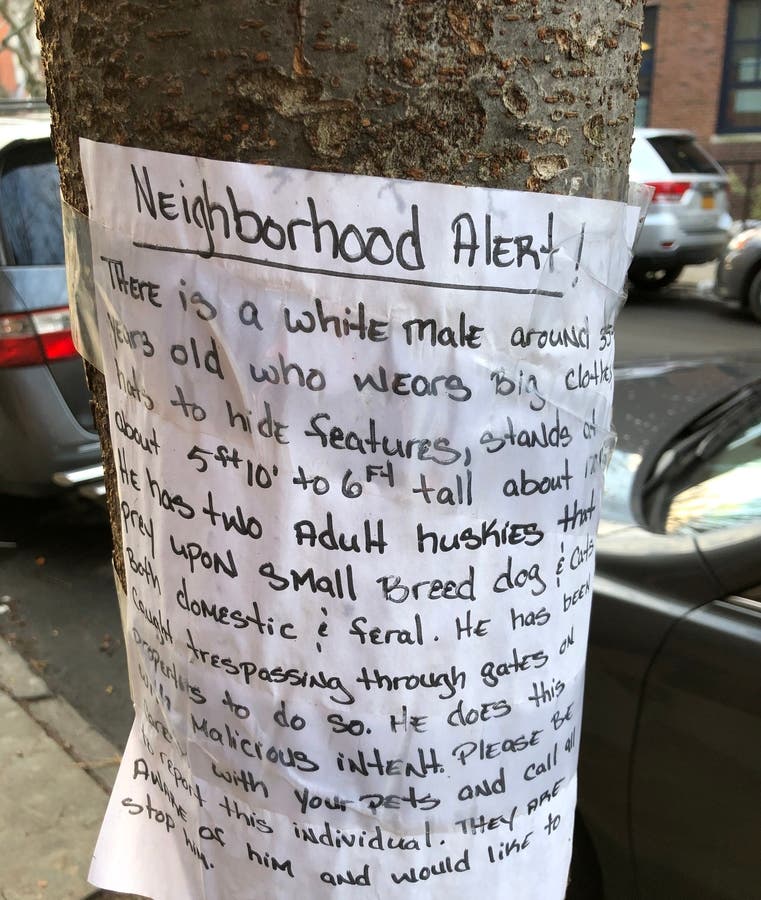 Neighborhood Alert!
There is a white male around 35
years old who wears big clothes
hats to hide features, stands at
about 5ft10' to 6Ft tall about
He has two Adult huskies that
prey upon small Breed dog & cats
Both domestic & feral. He has been
caught trespassing through gates on
to do so. He does this
with malicious intent. Please Be
with your pets and call
to report this individual. They are
Aware of him and would like to
stop him.